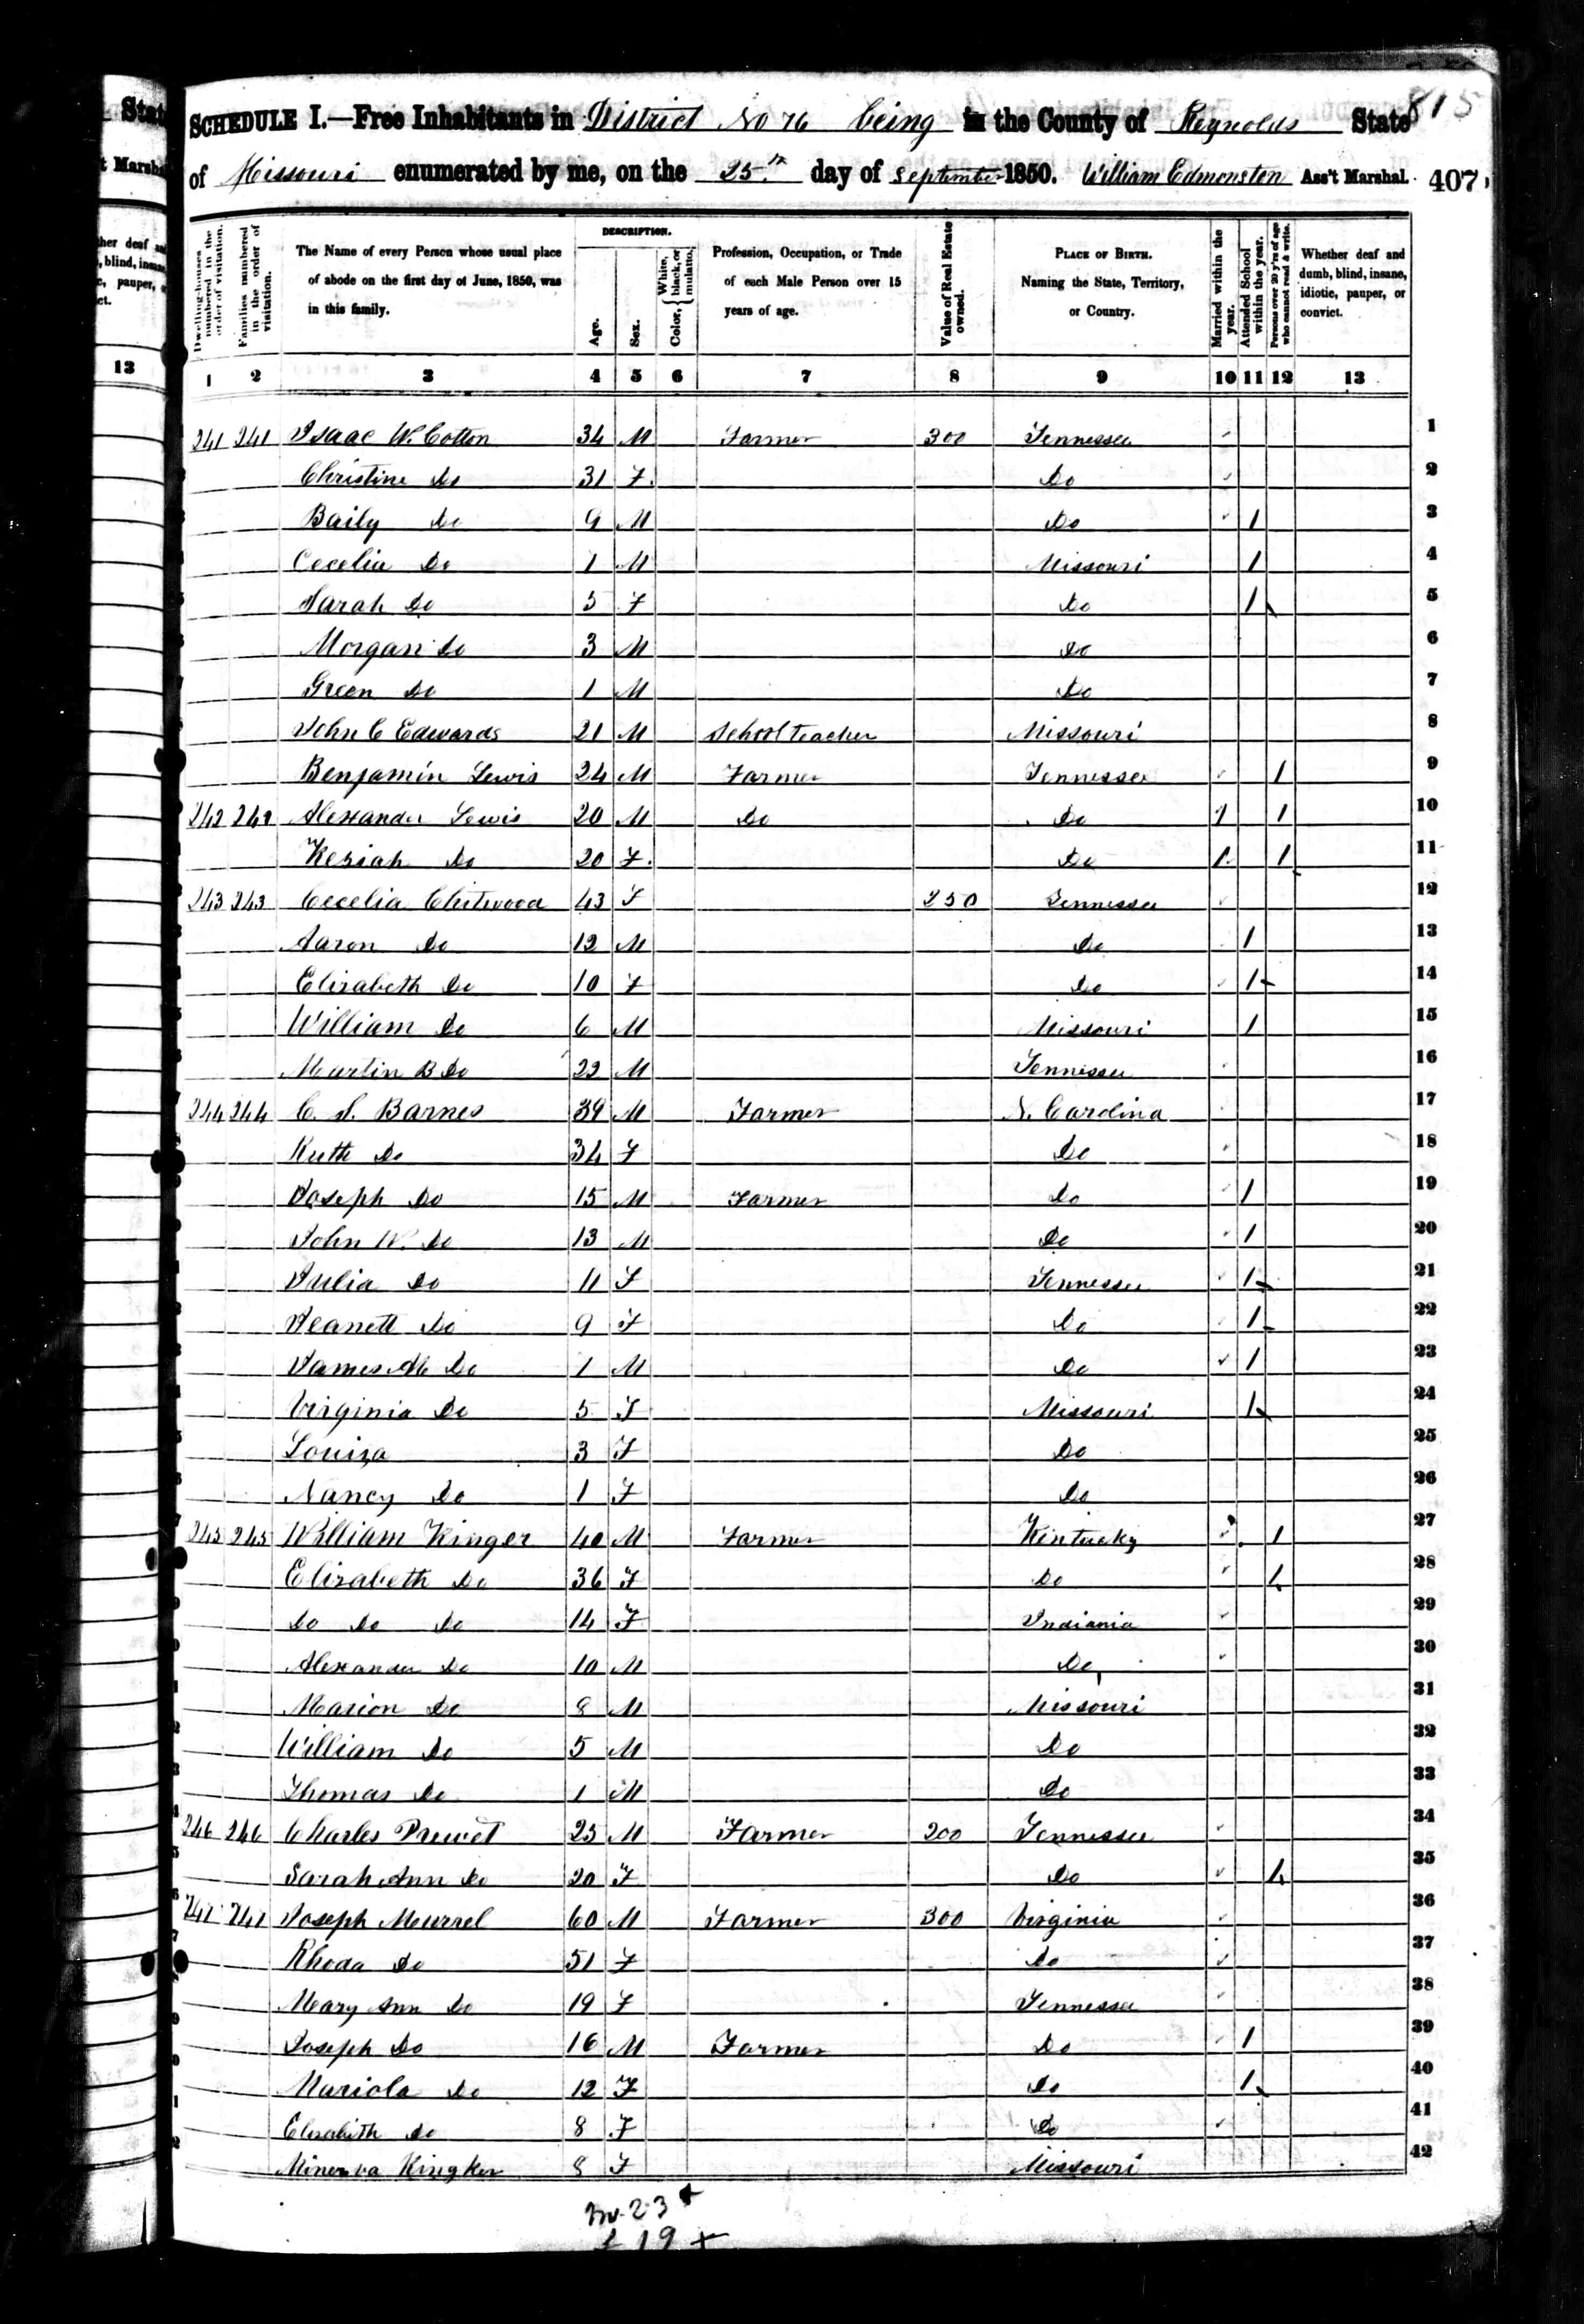 815
SCHEDULE I.—Free Inhabitants in District No 76 being in the County of Reynolds State
of Missouri enumerated by me, on the 25th day of September 1850. William Edmonsten Ass't Marshal. 407
Dwelling-houses numbered in the order of visitation.
Families numbered in the order of visitation.
The Name of every Person whose usual place of abode on the first day of June, 1850, was in this family.
DESCRIPTION.
Age.
Sex.
Color, { White, black, or mulatto.
Profession, Occupation, or Trade of each Male Person over 15 years of age.
Value of Real Estate owned.
PLACE OF BIRTH. Naming the State, Territory, or Country.
Married within the year.
Attended School within the year.
Persons over 20 y'rs of age who cannot read & write.
Whether deaf and dumb, blind, insane, idiotic, pauper, or convict.
1 2 3 4 5 6 7 8 9 10 11 12 13
241 241 Isaac W. Cotton 34 M Farmer 300 Tennessee 1
Christine Do 31 F Do 2
Baily Do 9 M Do 1 3
Cecelia Do 1 M Missouri 1 4
Sarah Do 5 F Do 1 5
Morgan Do 3 M Do 6
Green Do 1 M Do 7
John C Edwards 21 M School teacher Missouri 8
Benjamin Lewis 24 M Farmer Tennessee 1 9
242 242 Alexander Lewis 20 M Do Do 1 1 10
Keziah Do 20 F Do 1 1 11
243 243 Cecelia Chitwood 43 F 250 Tennessee 12
Aaron Do 12 M Do 1 13
Elizabeth Do 10 F Do 1 14
William Do 6 M Missouri 1 15
Martin B Do 22 M Tennessee 16
244 244 C. S. Barnes 39 M Farmer N. Carolina 17
Ruth Do 34 F Do 18
Joseph Do 15 M Farmer Do 1 19
John W. Do 13 M Do 1 20
Julia Do 11 F Tennessee 1 21
Jeanett Do 9 F Do 1 22
James M Do 1 M Do 1 23
Virginia Do 5 F Missouri 1 24
Louiza 3 F Do 25
Nancy Do 1 F Do 26
245 245 William Kinger 40 M Farmer Kentucky 1 27
Elizabeth Do 36 F Do 1 28
Do Do Do 14 F Indiania 29
Alexander Do 10 M Do 30
Marion Do 8 M Missouri 31
William Do 5 M Do 32
Thomas Do 1 M Do 33
246 246 Charles Prewet 25 M Farmer 200 Tennessee 34
Sarah Ann Do 20 F Do 1 35
247 247 Joseph Murrel 60 M Farmer 300 Virginia 36
Rhoda Do 51 F Do 37
Mary Ann Do 19 F Tennessee 38
Joseph Do 16 M Farmer Do 1 39
Mariola Do 12 F Do 1 40
Elizabith Do 8 F Do 41
Minerva Kingker 8 F Missouri 42
m. 23
f 19